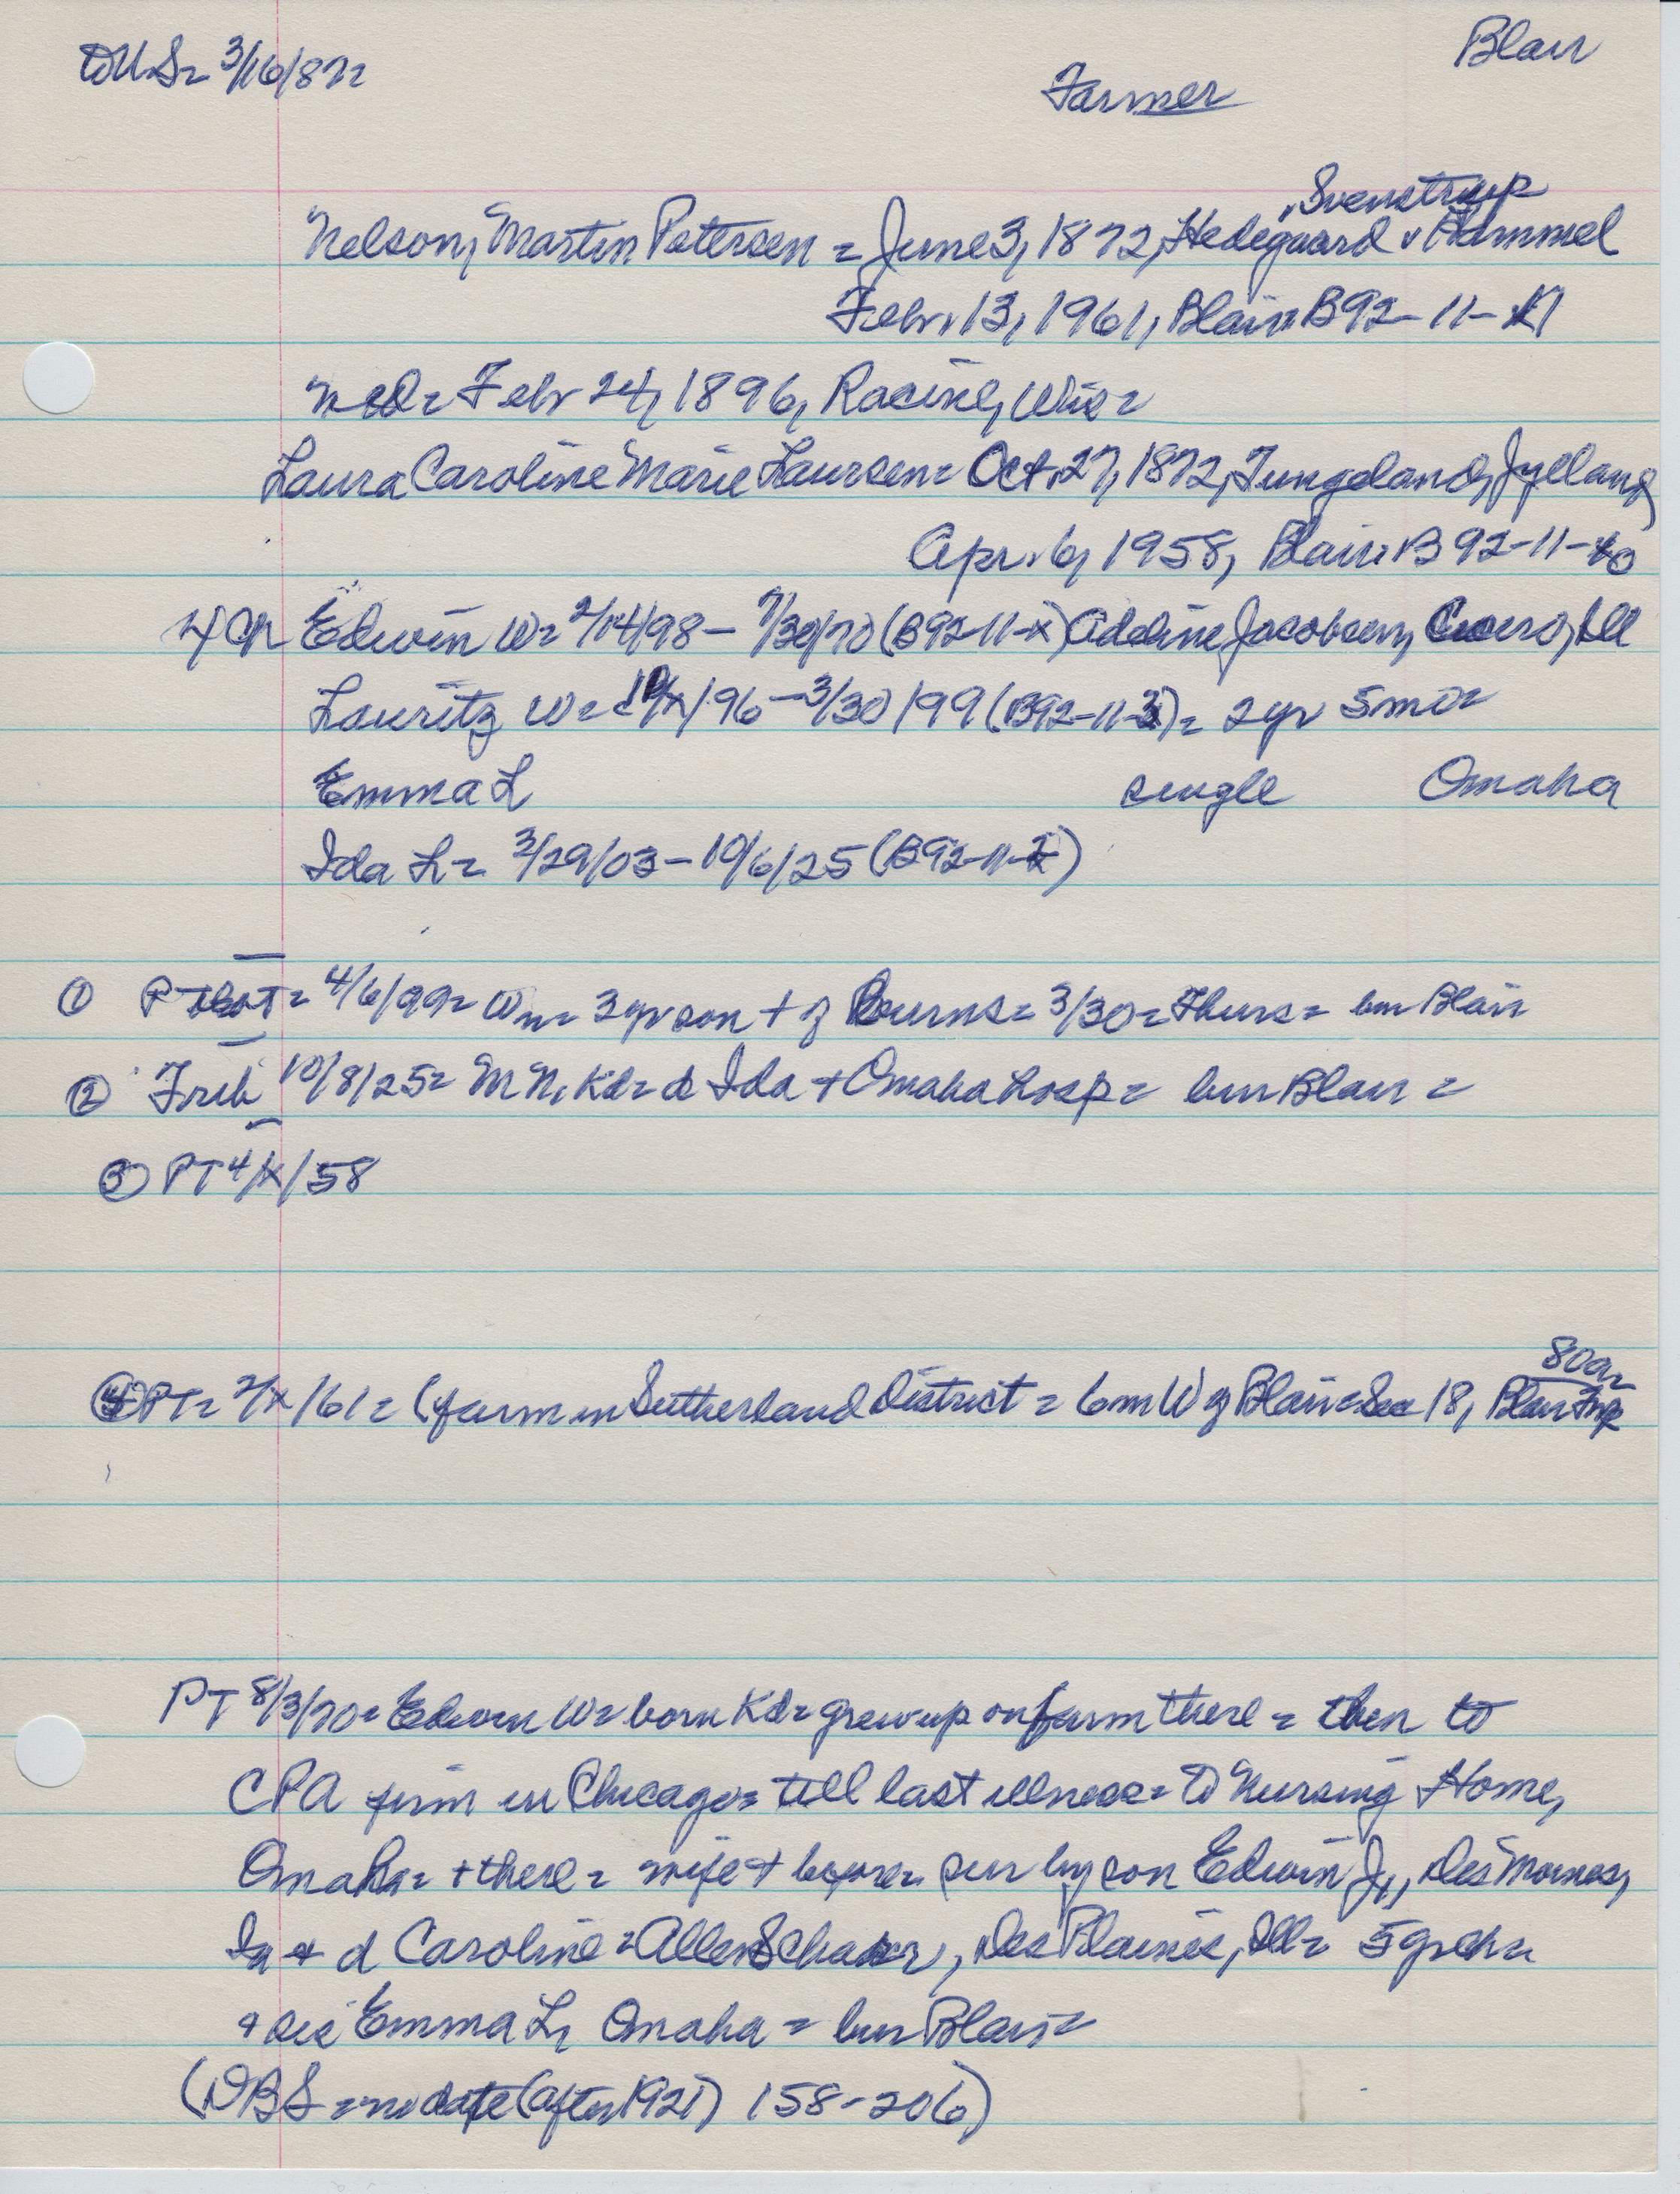 Blair
Farmer
Svenstrup
Nelson, Martin Petersen = June 3, 1872, Hedegaard v Hammel
Febr. 13, 1961, Blair = B92-11-
md = Febr 24, 1896, Racine, Wis =
Laura Caroline Marie Laursen = Oct. 27, 1872, Jyelland
Apr. 6, 1958, Blair = B 92-11-
4 ch Edwin W = 2/14/98 - 7/30/70 (B92-11-x) Adeline Jacobsen, Cicero, Ill
Lauritz W = /96 - 3/30/99 (B92-11-3) = 2 yr 5 mo =
Emma L single Omaha
Ida L = 3/29/03 - 10/6/25 (B92-11-2)
① = 4/6/99 = Wm = 3 yr son + of Burns = 3/30 = Thurs = bur Blair
② Trib 10/8/25 = M N, Kd = d Ida + Omaha hosp = bur Blair =
③ PT 4/x/58
80a
④ PT = 2/x/61 = (farm in Sutherland District = 6 m W of Blair = Sec 18, Blair Twp
PT 8/3/70 = Edwin W = born Kd = grew up on farm there = then to
CPA firm in Chicago = till last illness = to Nursing Home,
Omaha = + there = wife + before = sur by son Edwin J., Des Moines,
Ia + d Caroline = Allen , Des Plaines, Ill = 5 gr ch =
+ sis Emma L, Omaha = bur Blair =
(DBS = no date (after 1921) 158-206)